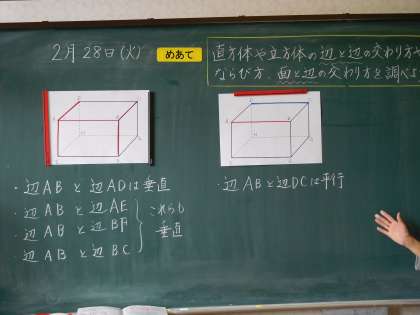 2月28日(火) めあて 直方体や立方体の辺と辺の交わり方や
ならび方、面と辺の交わり方を調べよ
・辺ABと辺ADは垂直
・辺ABと辺AE
・辺ABと辺BF
辺ABと辺BC
これらも
垂直
・辺ABと辺DCは平行